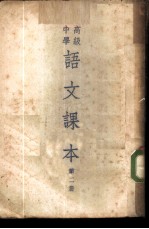 高級
中學
語文課本
第二冊